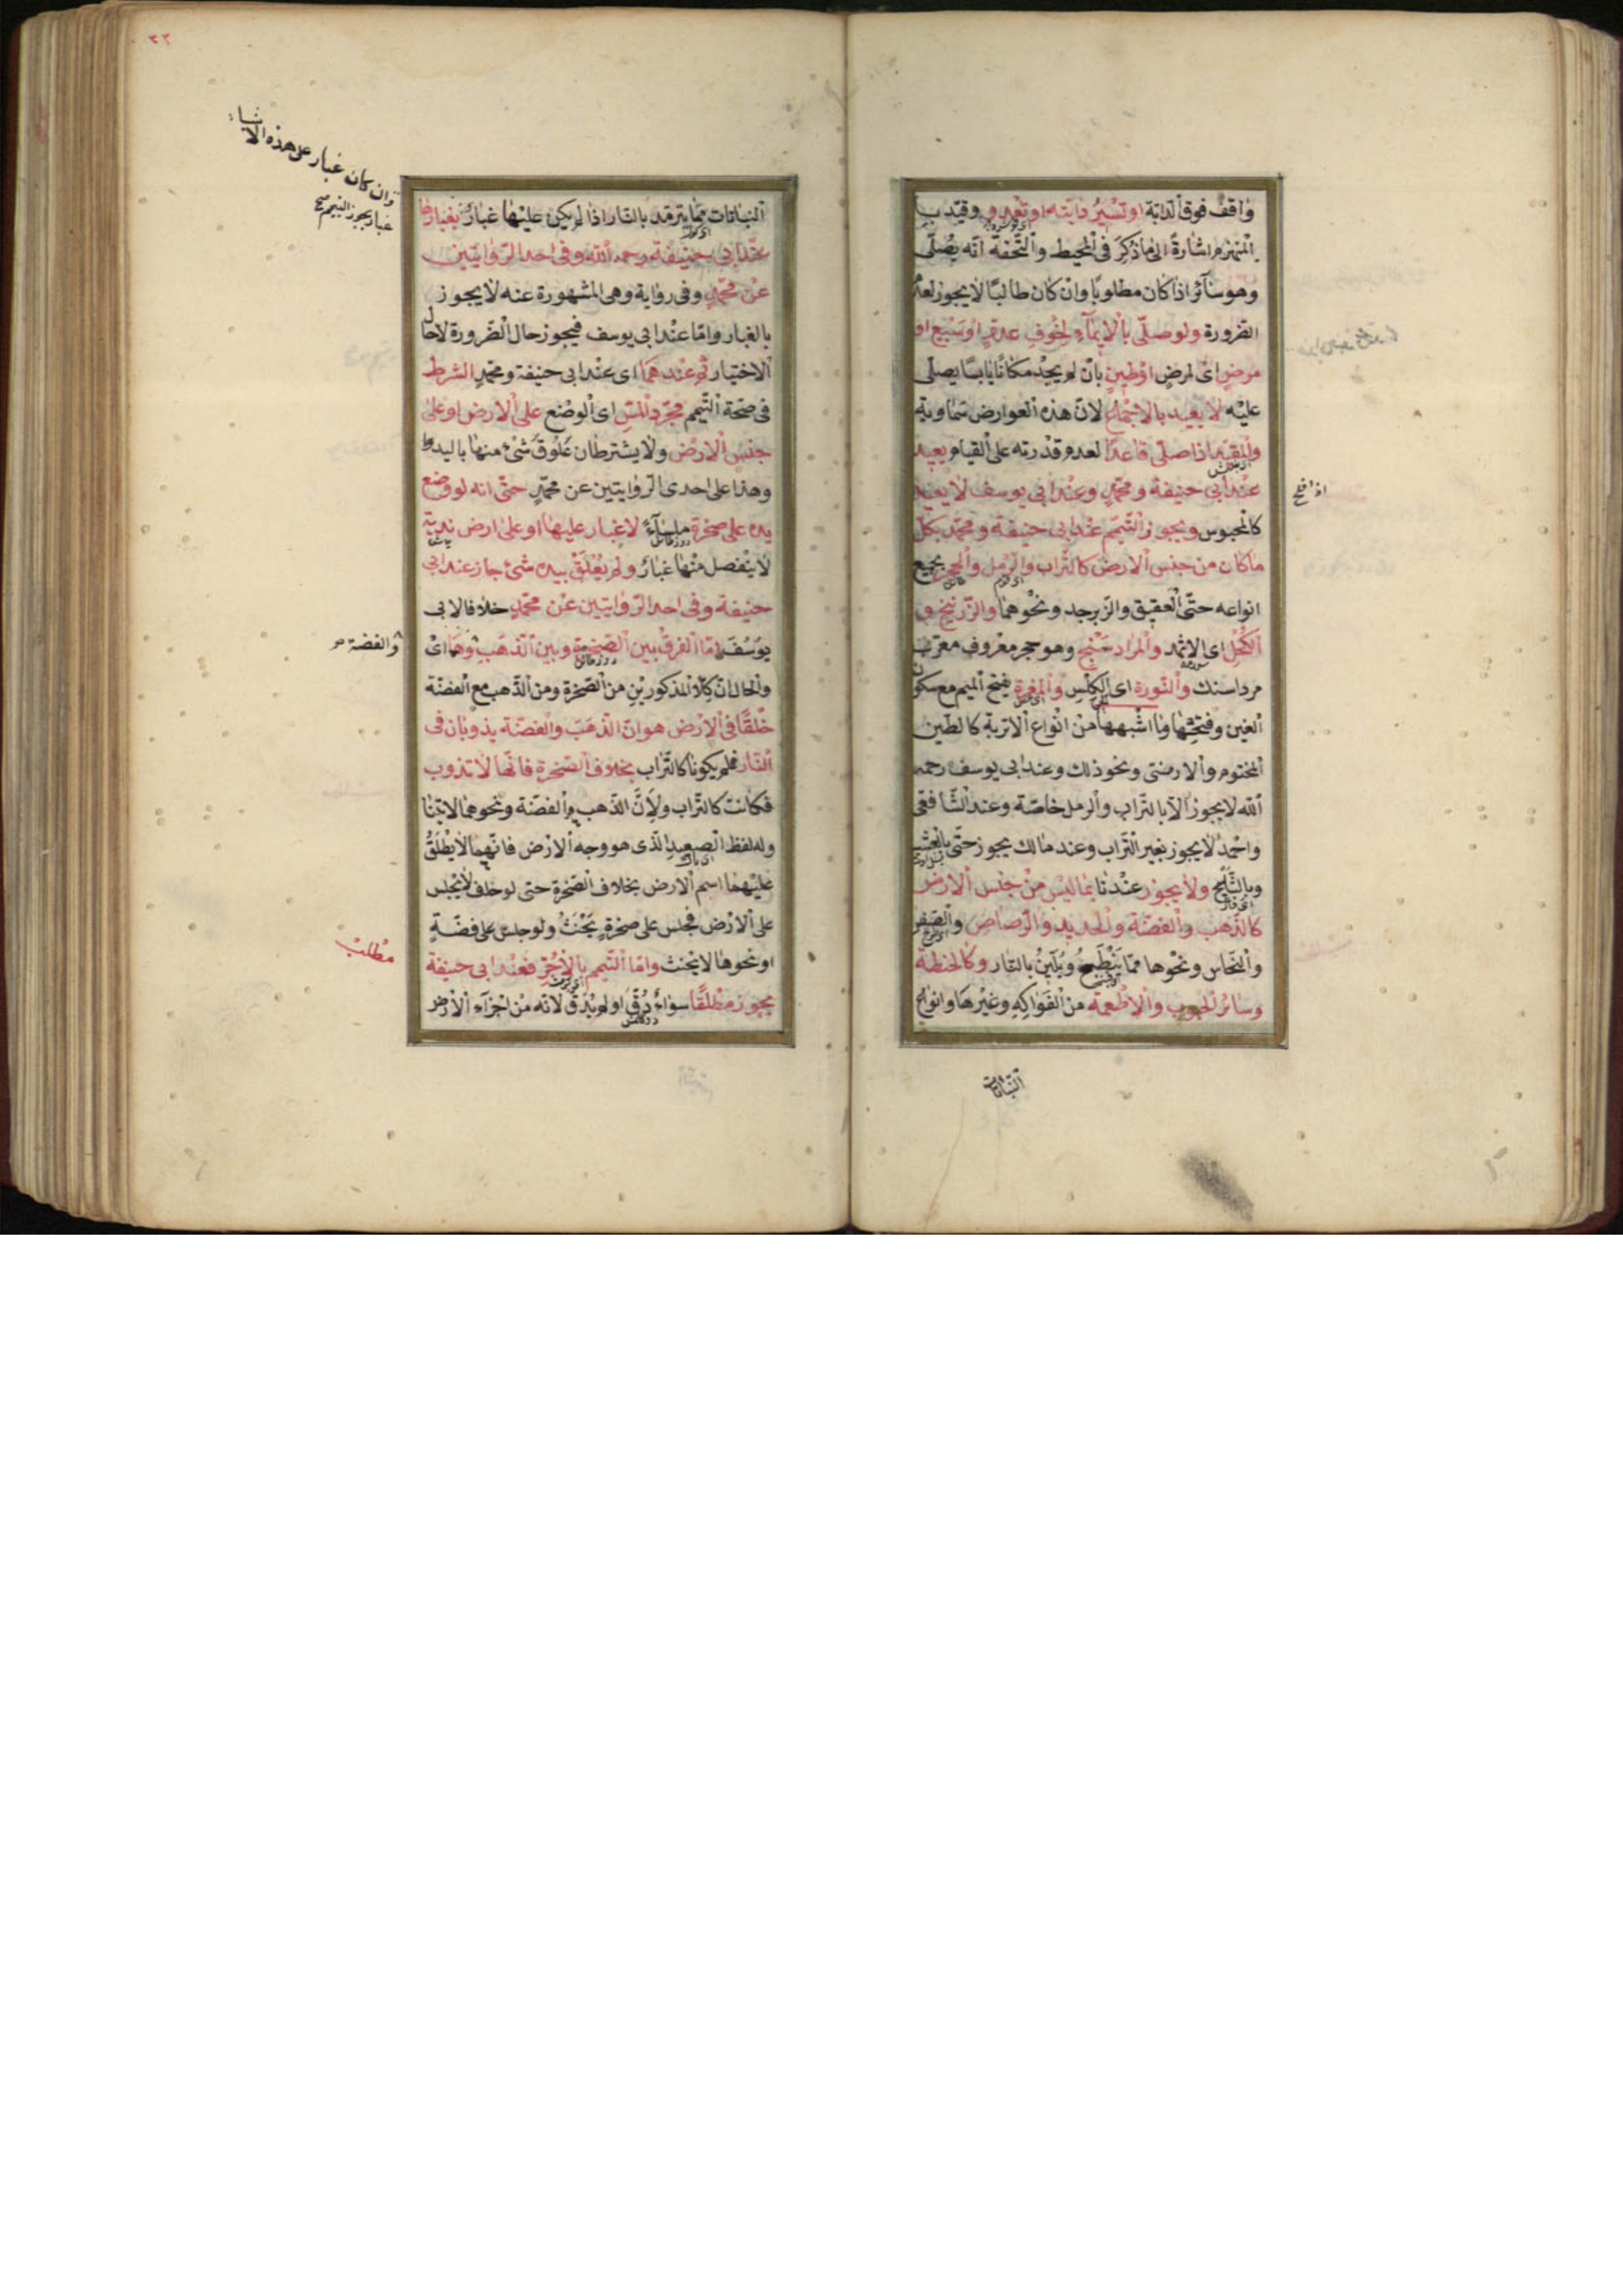 واقف فوق الدابة او تسير دابته او تعدو وقيد ب
المنهزم اشارة الى ما ذكر فى المحيط والتحفة انه يصلى
وهو سائر اذا كان مطلوبا وان كان طالبا لا يجوز لعدم
الضرورة ولو صلى بالايماء لخوف عدو او سبع او
مرض اى لمرض او طين بان لم يجد مكانا يابسا يصلى
عليه لا يعيد بالاجماع لان هذه العوارض سماوية
والمقيد اذا صلى قاعدا لعدم قدرته على القيام يعيد
عند ابى حنيفة ومحمد وعند ابى يوسف لا يعيد
كالمحبوس ويجوز التيمم عند ابى حنيفة ومحمد بكل
ما كان من جنس الارض كالتراب والرمل والحجر بجميع
انواعه حتى العقيق والزبرجد ونحوهما والزرنيخ و
الكحل اى الاثمد والمراد سنج وهو حجر معروف معرب
مرداسنك والنورة اى الكلس والمغرة بفتح الميم مع سكون
الغين وفتحها وما اشبهها من انواع الاتربة كالطين
المختوم والارمنى ونحو ذلك وعند ابى يوسف رحمه
الله لا يجوز الا بالتراب والرمل خاصة وعند الشافعى
واحمد لا يجوز بغير التراب وعند مالك يجوز حتى بالعشب
وبالثلج ولا يجوز عندنا بما ليس من جنس الارض
كالذهب والفضة والحديد والرصاص والصفر
والنحاس ونحوها مما ينطبع ويلين بالنار وكالحنطة
وسائر الحبوب والاطعمة من الفواكه وغيرها وانواع
النباتات
٣٣
وان كان غبار على هذه الاشياء
غبار يجوز التيمم صح
النباتات مما يترمد بالنار اذا لم يكن عليها غبار بغبارها
عند ابى حنيفة رحمه الله وفى احد الروايتين
عن محمد وفى رواية وهى المشهورة عنه لا يجوز
بالغبار واما عند ابى يوسف فيجوز حال الضرورة لا حال
الاختيار ثم عندهما اى عند ابى حنيفة ومحمد الشرط
فى صحة التيمم مجرد المس اى الوضع على الارض او على
جنس الارض ولا يشترط ان علوق شئ منها باليد
وهذا على احدى الروايتين عن محمد حتى انه لو وضع
يده على صخرة ملساء لا غبار عليها او على ارض ندية
لا ينفصل منها غبار ولم يعلق بيده شئ جاز عند ابى
حنيفة وفى احد الروايتين عن محمد خلافا لابى
يوسف اما الفرق بين الصخرة وبين الذهب وهما اى
والفضة صح
والحال ان كلا المذكورين من الصخرة ومن الذهب مع الفضة
خلقا فى الارض هو ان الذهب والفضة يذوبان فى
النار فلم يكونا كالتراب بخلاف الصخرة فانها لا تذوب
فكانت كالتراب ولان الذهب والفضة ونحوهما لا يتنا
وله لفظ الصعيد الذى هو وجه الارض فانهما لا يطلق
عليهما اسم الارض بخلاف الصخرة حتى لو حلف لا يجلس
على الارض فجلس على صخرة يحنث ولو جلس على فضة
او نحوها لا يحنث واما التيمم بالآجر فعند ابى حنيفة
مطلب
يجوز مطلقا سواء دق او لم يدق لانه من اجزاء الارض